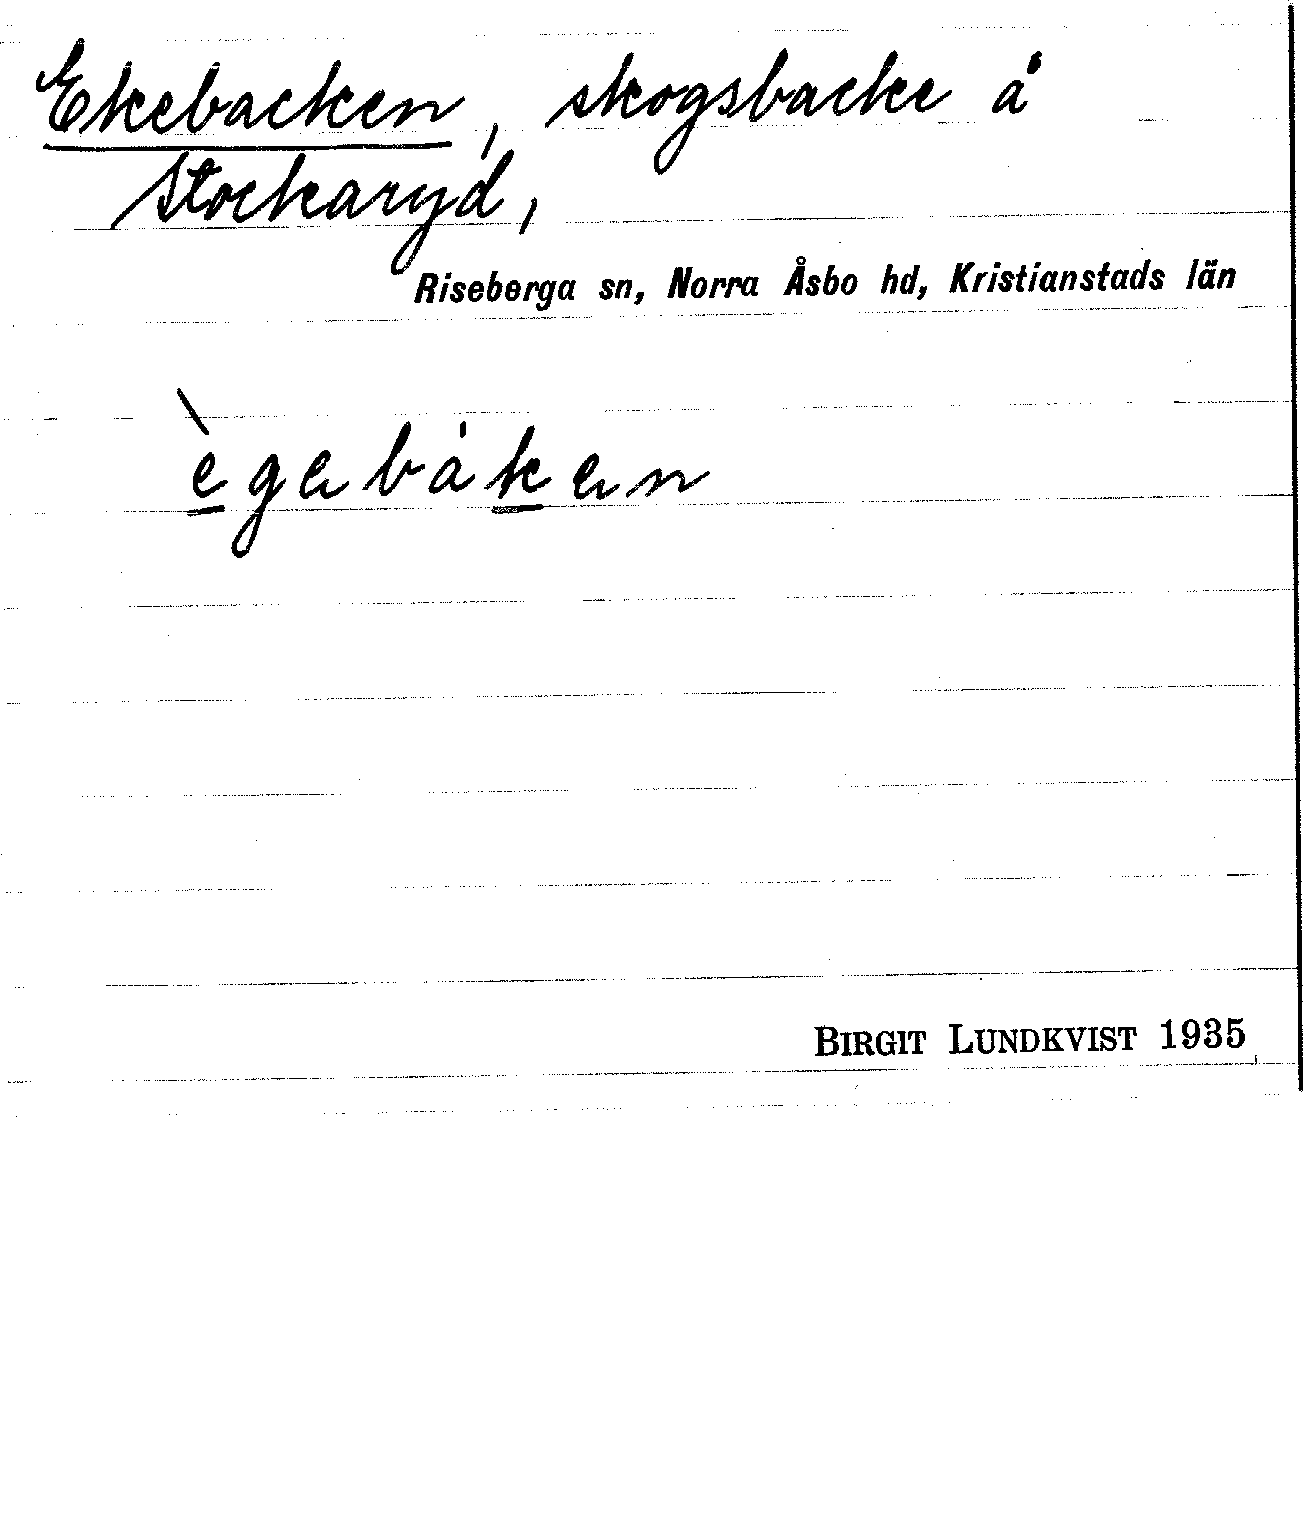 Ekebacken, skogsbacke å
Stockaryd,
Riseberga sn, Norra Åsbo hd, Kristianstads län
BIRGIT LUNDKVIST 1935